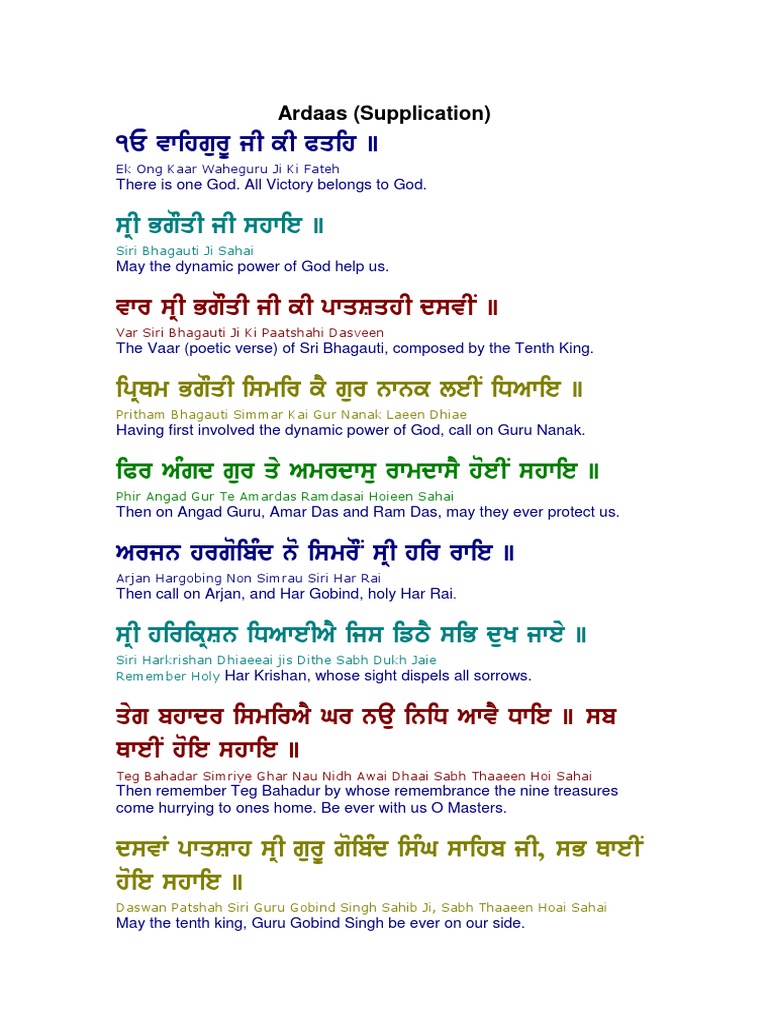 Ardaas (Supplication)
ੴ ਵਾਹਿਗੁਰੂ ਜੀ ਕੀ ਫਤਹਿ ॥
Ek Ong Kaar Waheguru Ji Ki Fateh
There is one God. All Victory belongs to God.
ਸ੍ਰੀ ਭਗੌਤੀ ਜੀ ਸਹਾਇ ॥
Siri Bhagauti Ji Sahai
May the dynamic power of God help us.
ਵਾਰ ਸ੍ਰੀ ਭਗੌਤੀ ਜੀ ਕੀ ਪਾਤਸ਼ਤਹੀ ਦਸਵੀਂ ॥
Var Siri Bhagauti Ji Ki Paatshahi Dasveen
The Vaar (poetic verse) of Sri Bhagauti, composed by the Tenth King.
ਪ੍ਰਿਥਮ ਭਗੌਤੀ ਸਿਮਰਿ ਕੈ ਗੁਰ ਨਾਨਕ ਲਈਂ ਧਿਆਇ ॥
Pritham Bhagauti Simmar Kai Gur Nanak Laeen Dhiae
Having first involved the dynamic power of God, call on Guru Nanak.
ਫਿਰ ਅੰਗਦ ਗੁਰ ਤੇ ਅਮਰਦਾਸੁ ਰਾਮਦਾਸੈ ਹੋਈਂ ਸਹਾਇ ॥
Phir Angad Gur Te Amardas Ramdasai Hoieen Sahai
Then on Angad Guru, Amar Das and Ram Das, may they ever protect us.
ਅਰਜਨ ਹਰਗੋਬਿੰਦ ਨੋ ਸਿਮਰੌਂ ਸ੍ਰੀ ਹਰਿ ਰਾਇ ॥
Arjan Hargobing Non Simrau Siri Har Rai
Then call on Arjan, and Har Gobind, holy Har Rai.
ਸ੍ਰੀ ਹਰਿਕ੍ਰਿਸ਼ਨ ਧਿਆਈਐ ਜਿਸ ਡਿਠੈ ਸਭਿ ਦੁਖ ਜਾਏ ॥
Siri Harkrishan Dhiaeeai jis Dithe Sabh Dukh Jaie
Remember Holy Har Krishan, whose sight dispels all sorrows.
ਤੇਗ ਬਹਾਦਰ ਸਿਮਰਿਐ ਘਰ ਨਉ ਨਿਧਿ ਆਵੈ ਧਾਇ ॥ ਸਬ
ਥਾਈਂ ਹੋਇ ਸਹਾਇ ॥
Teg Bahadar Simriye Ghar Nau Nidh Awai Dhaai Sabh Thaaeen Hoi Sahai
Then remember Teg Bahadur by whose remembrance the nine treasures
come hurrying to ones home. Be ever with us O Masters.
ਦਸਵਾਂ ਪਾਤਸ਼ਾਹ ਸ੍ਰੀ ਗੁਰੂ ਗੋਬਿੰਦ ਸਿੰਘ ਸਾਹਿਬ ਜੀ, ਸਭ ਥਾਈਂ
ਹੋਇ ਸਹਾਇ ॥
Daswan Patshah Siri Guru Gobind Singh Sahib Ji, Sabh Thaaeen Hoai Sahai
May the tenth king, Guru Gobind Singh be ever on our side.